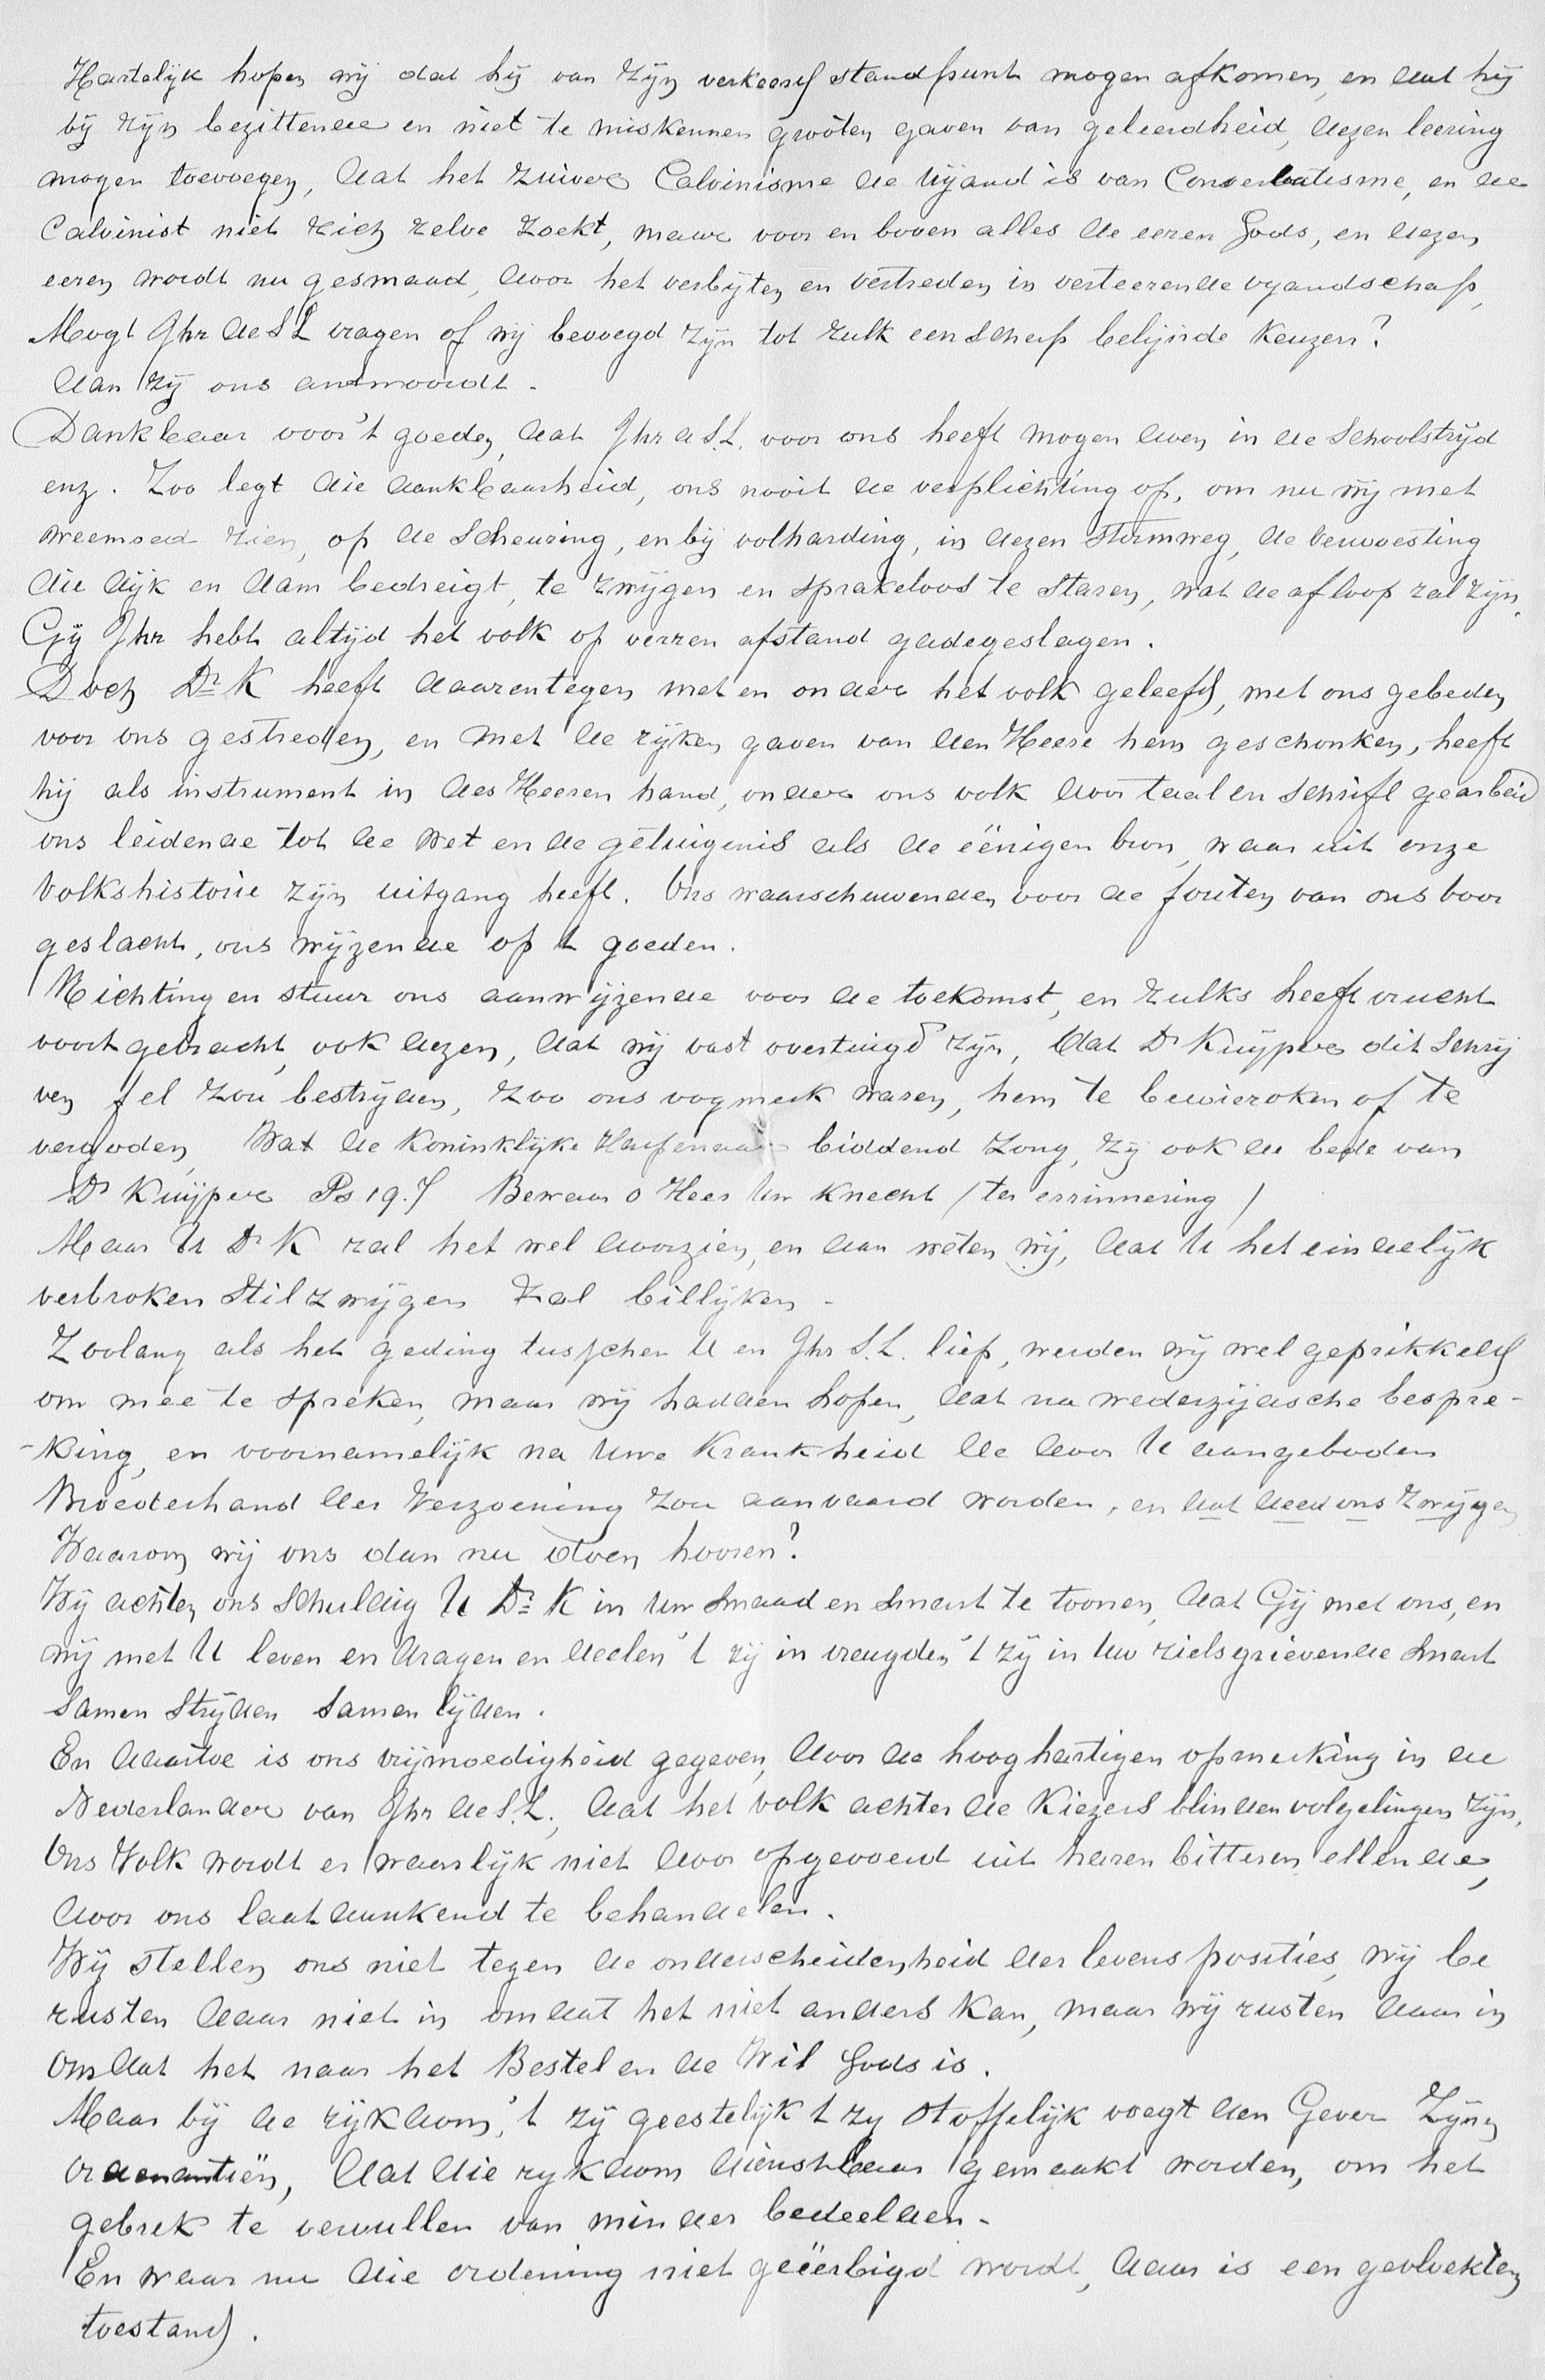 Hartelijk hopen wij dat hij van zijn verkeerd standpunt mogen afkomen, en dat hij
bij zijn bezittende en niet te miskennen grooten gaven van geleerdheid, dezen leering
mogen toevoegen, dat het zuiver Calvinisme de vijand is van Conserbatisme, en de
Calvinist niet zich zelve zoekt, maar voor en boven alles de eeren Gods, en dezen
eeren wordt nu gesmaad, door het verbijten en vertreden in verteerende vyandschap,
Mogt Jhr de S L vragen of wij bevoegd zijn tot zulk een scherp belijnde keuzen?
dan zij ons andwoordt.
Dankbaar voor 't goeden, dat Jhr d S.L. voor ons heeft mogen doen in de Schoolstrijd
enz. Zoo legt die dankbaarheid, ons nooit de verplichting op, om nu wij met
weemoed zien, op de Scheuring, en bij volharding, in dezen stormweg, de verwoesting
die dijk en dam bedreigt, te zwijgen en sprakeloos te staren, wat de afloop zal zijn.
Gij Jhr hebt altijd het volk op verren afstand gadegeslagen.
Doch Dr K heeft daarentegen met en onder het volk geleefd, met ons gebeden
voor ons gestreden, en met de rijken gaven van den Heere hem geschonken, heeft
hij als instrument in des Heeren hand, onder ons volk door taal en schrift gearbeid
ons leidende tot de wet en de getuigenis als de éénigen bron, waar uit onze
Volkshistorie zijn uitgang heeft. Ons waarschuwenden voor de fouten van ons voor
geslacht, ons wijzende op t goeden.
Richting en stuur ons aanwijzende voor de toekomst, en zulks heeft vrucht
voortgebracht, ook dezen, dat wij vast overtuigd zijn, dat Dr Kuijper dit schrij
ven fel zou bestrijden, zoo ons oogmerk waren, hem te bewieroken of te
vergoden, Wat de koninklijke Harpenaar biddend zong, zij ook de bede van
Dr Kuijper Ps 19.7 Bewaar o Heer Uw knecht / ter errinnering /
Maar U Dr K zal het wel doorzien, en dan weten wij, dat U het eindelijk
verbroken stilzwijgen zal billijken.
Zoolang als het geding tusschen U en Jhr S.L. liep, werden wij wel geprikkeld
om mee te spreken, maar wij hadden hopen, dat na wederzijdsche bespre-
-king, en voornamelijk na Uwe Krankheid de door U aangeboden
Broederhand der Verzoening zou aanvaard worden, en dat deed ons zwijgen
Waarom wij ons dan nu doen hooren?
Wij achten ons schuldig U Dr K in Uw smaad en smart te toonen, dat Gij met ons, en
wij met U leven en dragen en deelen 't zij in vreugden 't zij in Uw zielsgrievende smart
Samen strijden samen lijden.
En daartoe is ons vrijmoedigheid gegeven, door de hooghartigen opmerking in de
Nederlander van Jhr de S.L., dat het volk achter de Kiezers blinden volgelingen zijn,
Ons Volk wordt er waarlijk niet door opgevoerd uit haren bitteren ellende,
door ons laatdunkend te behandelen.
Wij stellen ons niet tegen de onderscheidenheid der levensposities, wij be
rusten daar niet in omdat het niet anders kan, maar wij rusten daar in
omdat het naar het Bestel en de Wil Gods is.
Maar bij de rijkdom, 't zij geestelijk t zy stoffelijk voegt den Gever Zijne
ordenantiën, dat die rykdom dienstbaar gemaakt worden, om het
gebrek te vervullen van minder bedeelden.
En waar nu die ordening niet geëerbigd wordt, daar is een gevloekten
toestand.